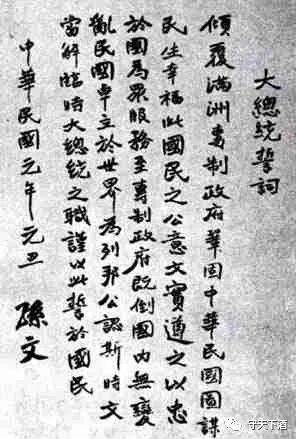 大總統誓詞
傾覆滿洲專制政府鞏固中華民國圖謀
民生幸福此國民之公意文實遵之以忠
於國為眾服務至專制政府既倒國內無變
亂民國卓立於世界為列邦公認斯時文
當解臨時大總統之職謹以此誓於國民
中華民國元年元旦 孫文
守天下酒